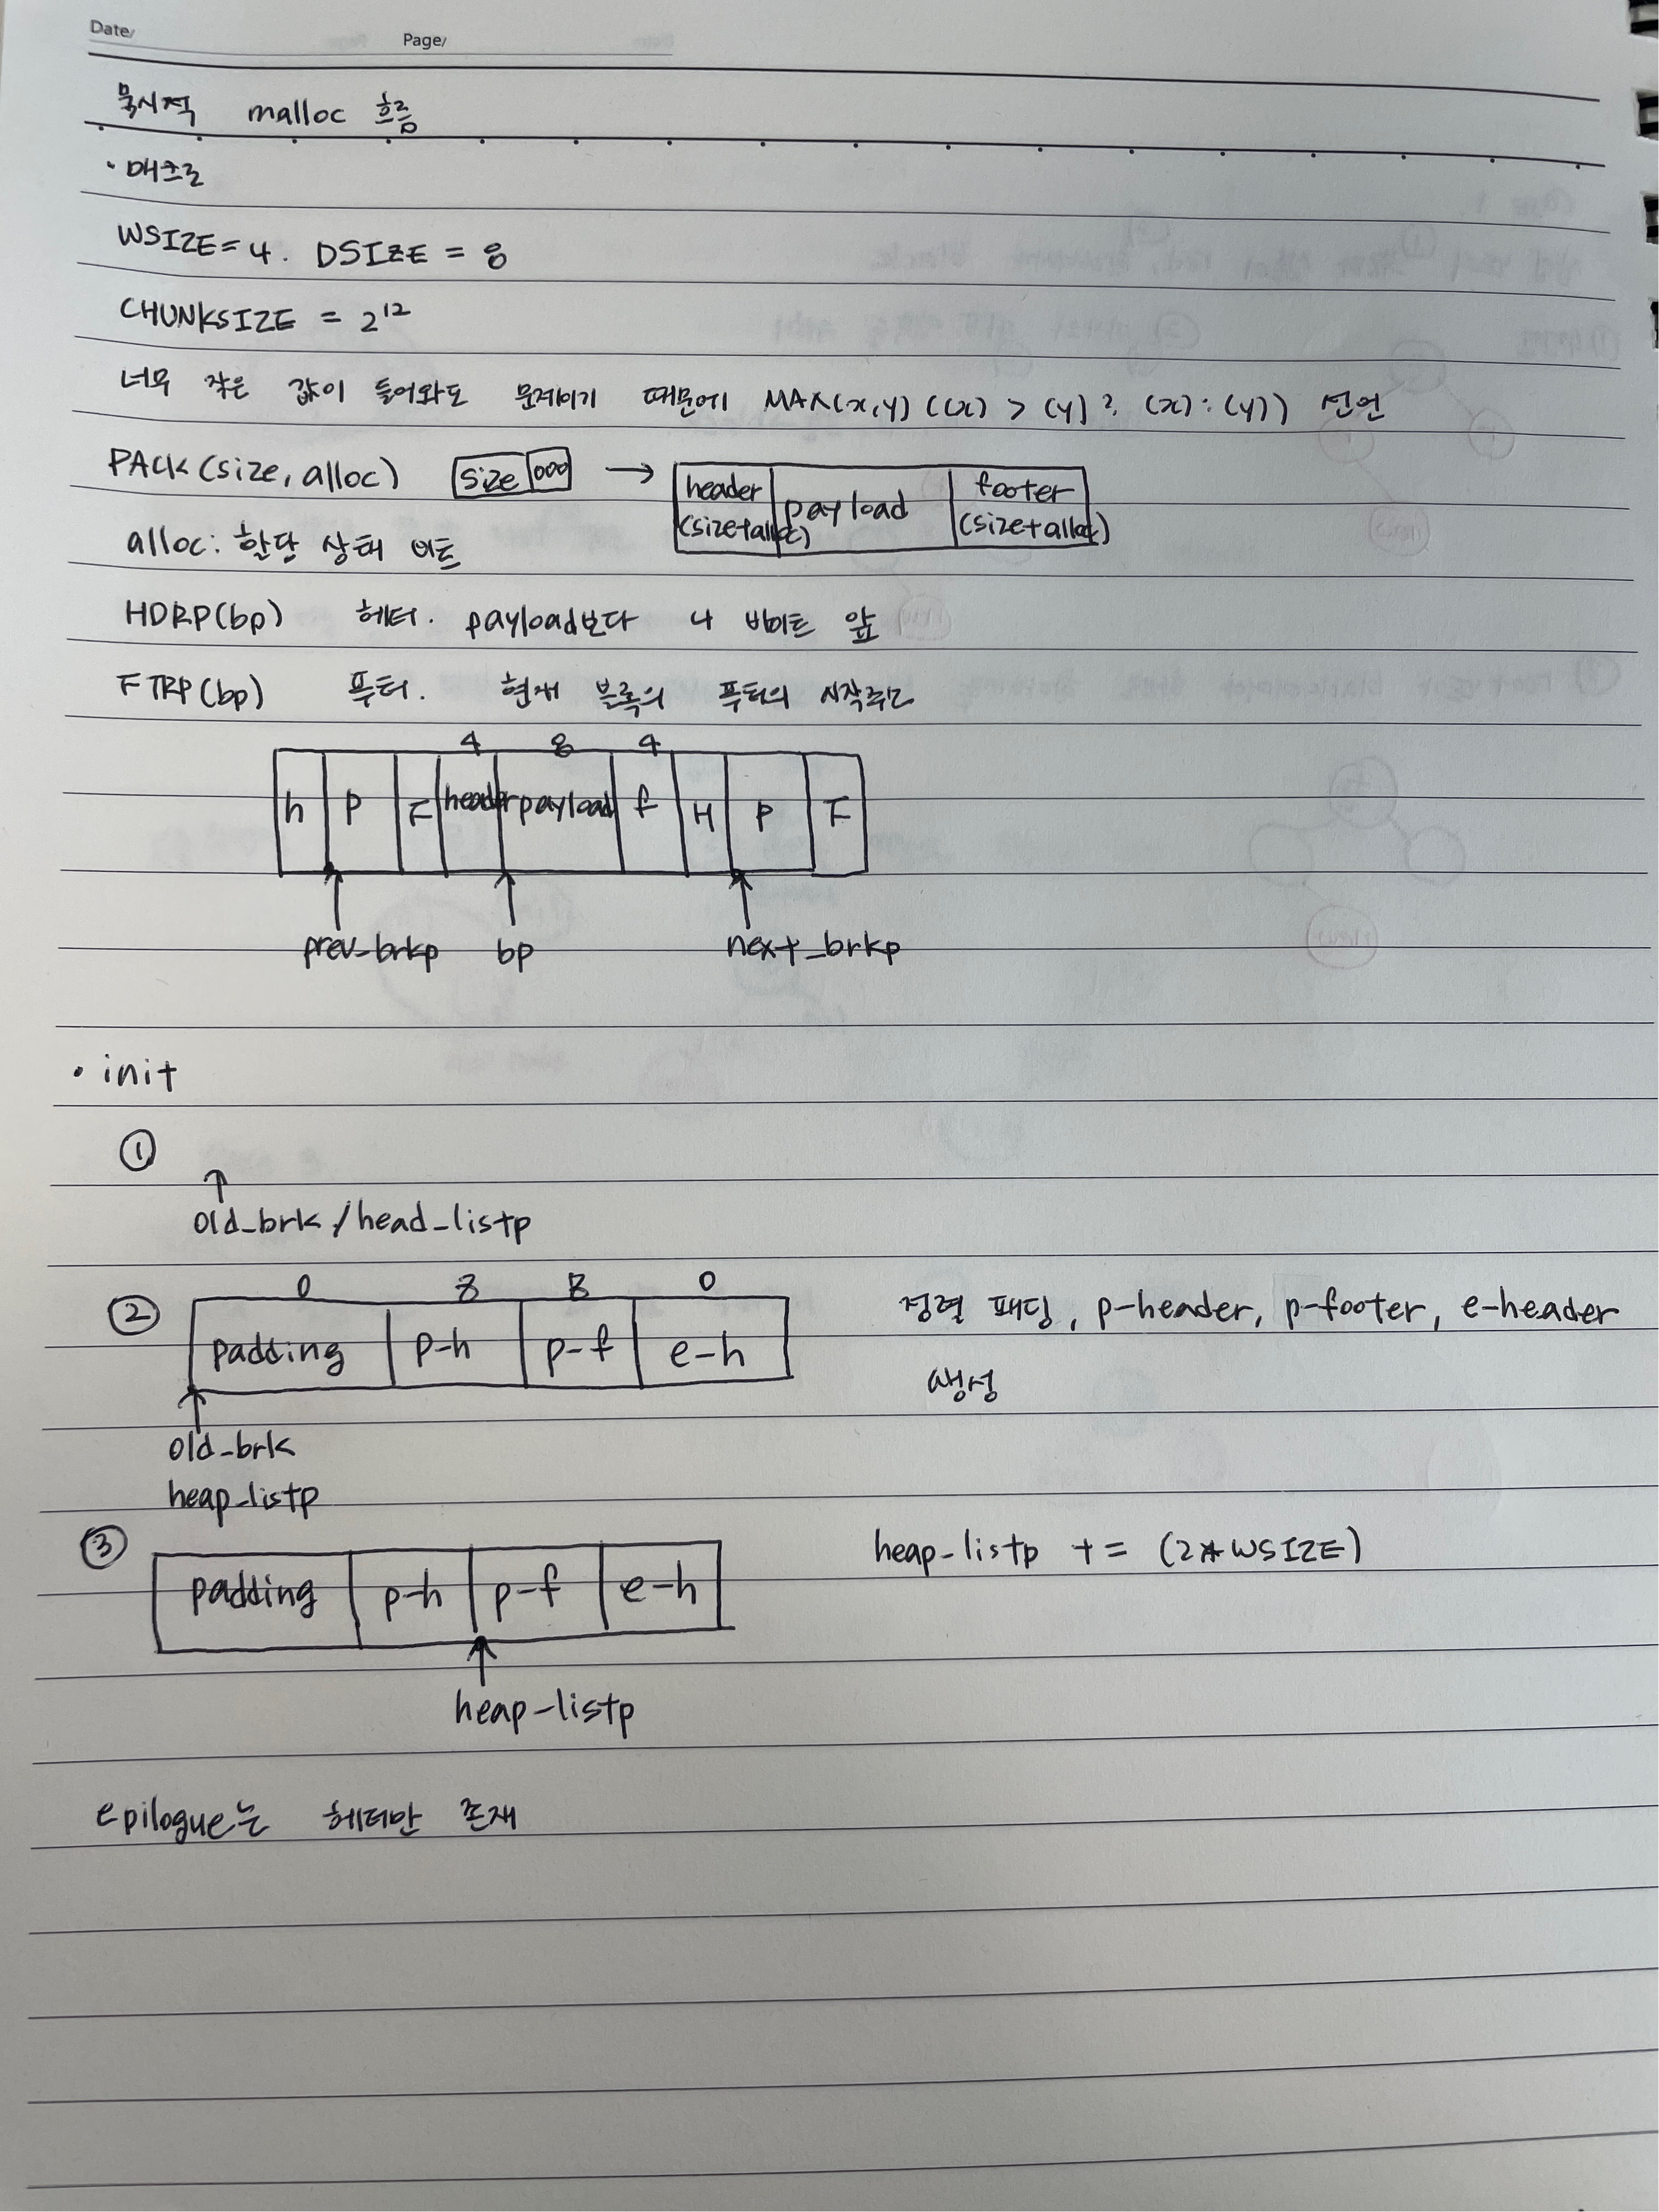 Date/
Page/
묵시적 malloc 흐름
· 매크로
WSIZE = 4. DSIZE = 8
CHUNKSIZE = 2¹²
너무 작은 값이 들어와도 문제이기 때문에 MAX(x,y) ((x) > (y) ? (x) : (y)) 선언
PACK(size, alloc) size 000 → header (size+alloc) payload footer (size+alloc)
alloc: 할당 상태 비트
HDRP(bp) 헤더. payload보다 4 바이트 앞
FTRP(bp) 푸터. 현재 블록의 푸터의 시작주소
4 8 4
h P F header payload f H P F
prev_brkp bp next_brkp
· init
①
old_brk / head_listp
0 8 8 0
② padding p-h p-f e-h 정렬 패딩, p-header, p-footer, e-header
생성
old_brk
heap_listp
③ padding p-h p-f e-h heap-listp += (2*WSIZE)
heap-listp
epilogue는 헤더만 존재